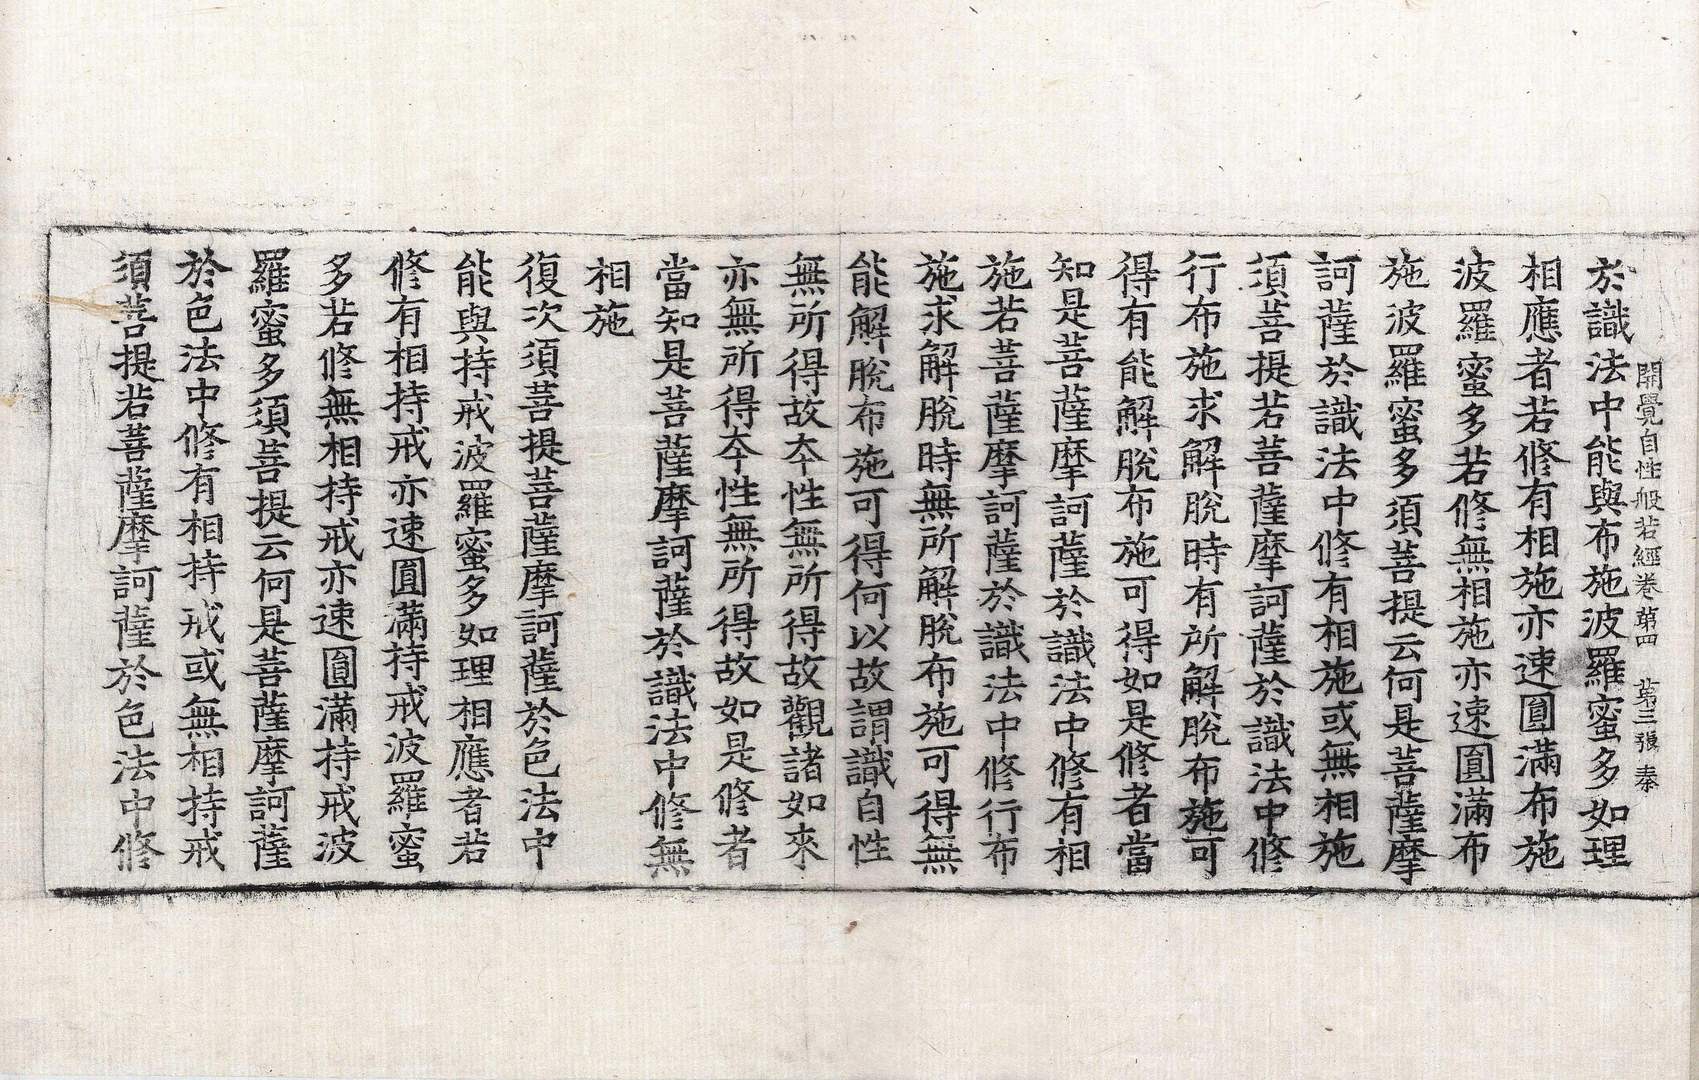 開覺自性般若經卷第四　第三張　秦
於識法中能與布施波羅蜜多如理
相應者若修有相施亦速圓滿布施
波羅蜜多若修無相施亦速圓滿布
施波羅蜜多須菩提云何是菩薩摩
訶薩於識法中修有相施或無相施
須菩提若菩薩摩訶薩於識法中修
行布施求解脫時有所解脫布施可
得有能解脫布施可得如是修者當
知是菩薩摩訶薩於識法中修有相
施若菩薩摩訶薩於識法中修行布
施求解脫時無所解脫布施可得無
能解脫布施可得何以故謂識自性
無所得故夲性無所得故觀諸如來
亦無所得夲性無所得故如是修者
當知是菩薩摩訶薩於識法中修無
相施
復次須菩提菩薩摩訶薩於色法中
能與持戒波羅蜜多如理相應者若
修有相持戒亦速圓滿持戒波羅蜜
多若修無相持戒亦速圓滿持戒波
羅蜜多須菩提云何是菩薩摩訶薩
於色法中修有相持戒或無相持戒
須菩提若菩薩摩訶薩於色法中修